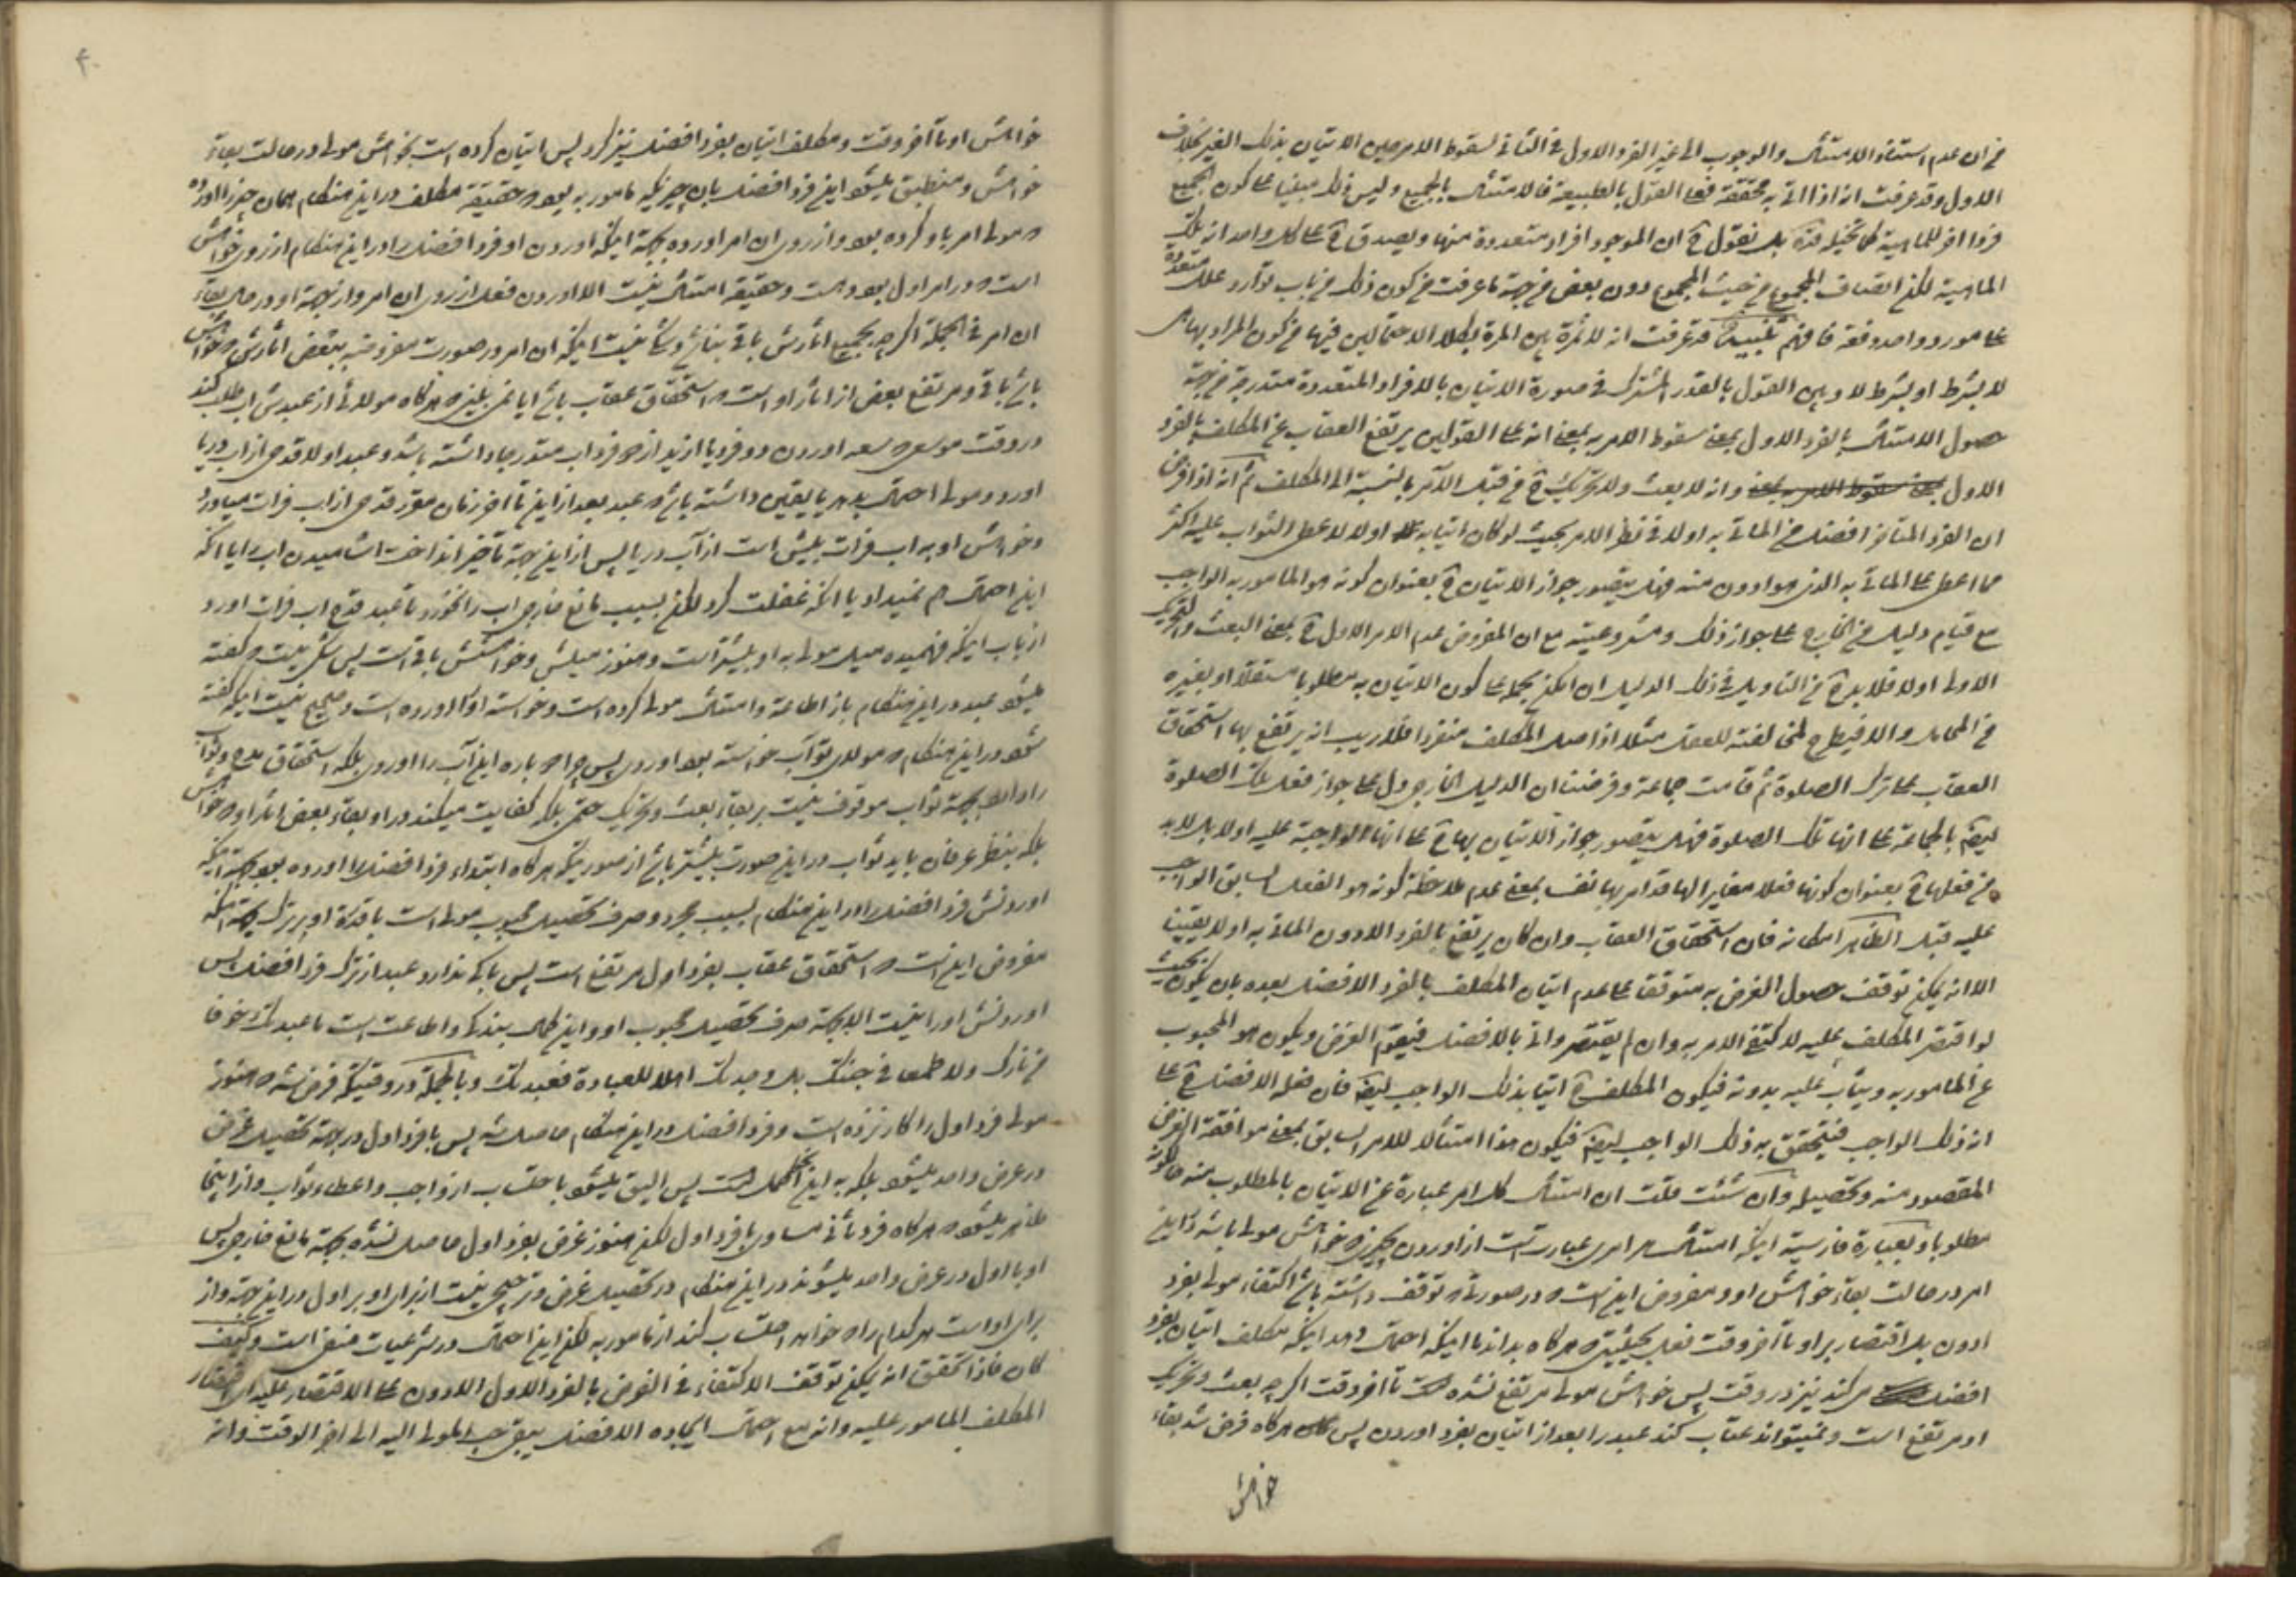 في ان عدم استناد الامتثال والوجوب الى غير الفرد الاول في الثاني لسقوط الامر حين الاتيان بذلك الغير بخلاف
الاول وقد عرفت انه اذا اتى به محققة فعلى القول بالطبيعة فالامتثال بالجميع وليس ذلك مبنيا على كون الجميع
فردا اخر للماهية كما تخيله بل نقول ح ان الموجود افراد متعددة منها ويصدق ح على كل واحد انه تلك
الماهية لكن اتصاف المجموع من حيث المجموع دون بعض من جهة ما عرفت من كون ذلك من باب توارد علل متعددة
على مورد واحد دفعة فافهم تنبيه قد عرفت انه لا ثمرة بين المرة بكلا الاحتمالين فيها من كون المراد بها
لا بشرط او بشرط لا وبين القول بالقدر المشترك في صورة الاتيان بالافراد المتعددة متدرجة من جهة
حصول الامتثال بالفرد الاول بمعنى سقوط الامر به بمعنى انه على القولين يرتفع العقاب عن المكلف بالفرد
الاول وانه لا بعث ولا تحريك ح من قبل الآمر بالنسبة الى المكلف ثم انه اذا فرض
ان الفرد المتأخر افضل من المأتي به اولا في نظر الامر بحيث لو كان اتيا به اولا لاعطى الثواب عليه اكثر
مما اعطى على المأتي به الذي هو ادون منه فهل يتصور جواز الاتيان ح بعنوان كونه هو المامور به الواجب
مع قيام دليل من الخارج على جواز ذلك ومشروعيته مع ان المفروض عدم الامر الاول ح بمعنى البعث والتحريك
الاولى او لا فلا بد ح من التاويل في ذلك الدليل ان امكن بحمله على كون الاتيان به مطلوبا مستقلا او بغيره
من المحامل والا فيطرح لمخالفته للعقل مثلا اذا صلى المكلف منفردا فلا ريب انه يرتفع بها استحقاق
العقاب على ترك الصلوة ثم قامت جماعة وفرضنا ان الدليل الخارجي دل على جواز فعل تلك الصلوة
ايضا بالجماعة على انها تلك الصلوة فهل يتصور جواز الاتيان بها ح على انها الواجبة عليه اولا بل لا بد
من فعلها ح بعنوان كونها فعلا مغايرا لها قد امر بها نفسا بمعنى عدم ملاحظة كونه هو الفعل السابق الواجب
عليه قبل الظاهر امكانه فان استحقاق العقاب وان كان يرتفع بالفرد الادون المأتي به اولا يقينا
الا انه يمكن توقف حصول الغرض به متوقفا على عدم اتيان المكلف بالفرد الافضل بعده بان يكون بحيث
لو اقتصر المكلف عليه لاكتفى الامر به وان لم يقتصر واتى بالافضل فيقوم الغرض ويكون هو المحبوب
عن المامور به ويثاب عليه بدونه فيكون المكلف ح اتيا بذلك الواجب ايضا فان فعله الافضل ح على
انه ذلك الواجب فيتحقق به ذلك الواجب ايضا فيكون هذا امتثالا للامر السابق بمعنى موافقة الغرض
المقصود منه وتحصيله وان شئت قلت ان امتثال كل امر عبارة عن الاتيان بالمطلوب منه حال كونه
مطلوبا وبعبارة فارسية اينكه امتثال هر امري عبارتست از اوردن چيزي كه خواهش مولى باشد از اين
امر در حالت بقاء خواهش او ومفروض اين است كه در صورتيكه توقف داشته باشد اكتفاء مولى بفرد
ادون بل اقتصار بر او تا آخر وقت فعل بحيثيتي كه هر كاه بداند يا اينكه احتمال دهد اينكه مكلف اتيان بفرد
افضل مي كند نيز در وقت پس خواهش مولى مرتفع نشده است تا آخر وقت اكر چه بعث وتحريك
او مرتفع است ونميتواند عتاب كند عبد را بعد از اتيان بفرد اوردن پس هر كاه فرض شد بقاء
خواهش
۴۰
خواهش او تا آخر وقت ومكلف اتيان بفرد افضل نيز كرد پس اتيان كرده است بخواهش مولى در حالت بقاء
خواهش ومنطبق ميشود اين فرد افضل بان چيزيكه مامور به بود كه حقيقة مكلف در اين هنكام همان چيز را اورده
كه مولى امر باو كرده بود واز روي ان امر اورده بجهة اينكه اوردن او فرد افضل را در اين هنكام از روي خواهش
است كه در امر اول بود وحقيقة امتثال نيست الا اوردن فعل از روي ان امر واز جهة او در حال بقاء
ان امر في الجملة اكر چه بجميع اثارش باقي نباشد وشكي نيست اينكه ان امر در صورت مفروضه ببعض اثارش كه خواهش
باشد باقي ومرتفع بعض از اثار او است كه استحقاق عقاب باشد ايا نمي بيني كه هر كاه مولائي از عبدش اب طلب كند
در وقت موسعي كه سعه اوردن دو فرد يا ازيد از دو فرد اب متدرجا داشته باشد وعبد اولا قدحي از اب دريا
اورد ومولى احتمال بدهد يا يقين داشته باشد كه عبد بعد از اين تا آخر زمان مقرر قدحي از اب فرات مياورد
وخواهش او به اب فرات بيش است از آب دريا پس از اين جهة تأخير انداخت اشاميدن اب را يا انكه
اين احتمال هم نميداد يا انكه غفلت كرد لكن بسبب مانع خارجي اب را نخورد تا عبد قدح اب فرات اورد
از باب اينكه فهميده ميل مولى به او بيشتر است وهنوز ميلش وخواهشش باقي است پس شكي نيست كه گفته
ميشود عبد در اين هنكام باز اطاعة وامتثال مولى كرده است وخواسته او را اورده است وصحيح نيست اينكه گفته
شود در اين هنكام كه مولاي تو آب خواسته بود اوردي پس چرا دوباره اين آب را اوردي بلكه استحقاق مدح وثواب
را دارد بجهة ثواب موقوف نيست بر بقاء بعث وتحريك حتمي بلكه كفايت ميكند در او بقاء بعض اثار او كه خواهش
بلكه بنظر عرفان بايد ثواب در اين صورت بيشتر باشد از صورتيكه هر كاه ابتداء فرد افضل را اورده بود بجهة اينكه
اوردنش فرد افضل را در اين هنكام بسبب مجرد وصرف تحصيل محبوب مولى است با قدرة او بر ترك بجهة انكه
مفروض اين است كه استحقاق عقاب بفرد اول مرتفع است پس باكي ندارد عبد از ترك فرد افضل پس
اوردنش او را نيست الا بجهة صرف تحصيل محبوب او واين كمال بندكي واطاعت است ما عبدتك خوفا
من نارك ولا طمعا في جنتك بل وجدتك اهلا للعبادة فعبدتك وبالجملة در وقتيكه فرض شد كه هنوز
مولى فرد اول را كار نزده است وفرد افضل در اين هنكام حاصل شد پس با فرد اول در جهة تحصيل غرض
در عرض واحد ميشود بلكه به اين اكمل است پس اليق ميشود باحتساب از واجب واعطاء ثواب واز اينجا
ظاهر ميشود كه هر كاه فرد ثاني مساوي با فرد اول لكن هنوز غرض بفرد اول حاصل نشده بجهة مانع خارجي پس
او با اول در عرض واحد ميشوند در اين هنكام در تحصيل غرض وترجيحي نيست از براي او بر اول در اين جهة واز
براي او است هر كدام را كه خواهد احتساب كند از مامور به لكن اين احتمال در شرعيات منتفي است وكيف
كان فاذا تحقق انه يمكن توقف الاكتفاء في الغرض بالفرد الاول الادون على الاقتصار عليه اي اقتصار
المكلف المامور عليه وانه مع احتمال ايجاده الافضل يبقى حب المولى اليه الى اخر الوقت وانه